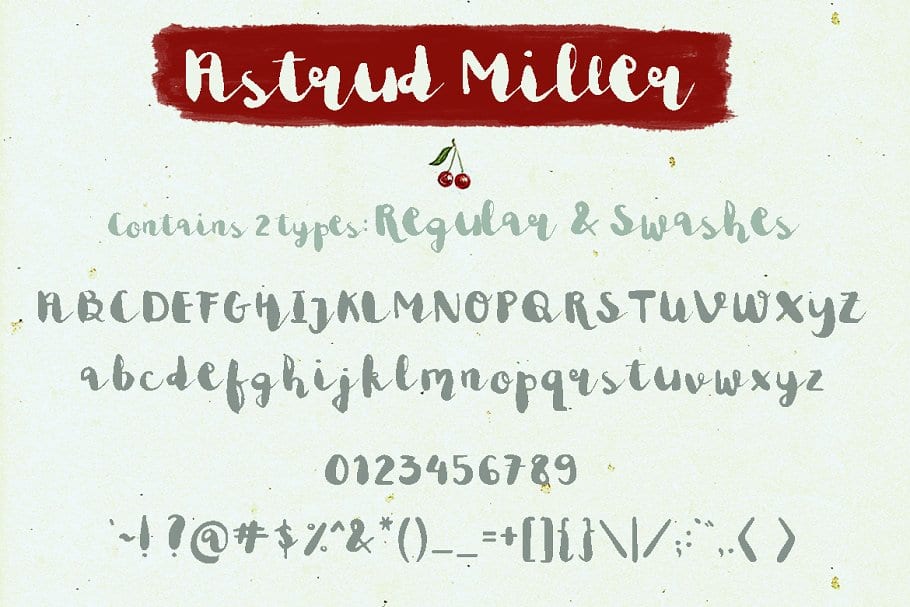 Astrud Miller
Contains 2 types: Regular & Swashes
ABCDEFGHIJKLMNOPQRSTUVWXYZ
abcdefghijklmnopqrstuvwxyz
0123456789
`~!?@#$%^&*()_—=+[]{}\|/;:"~,.<>